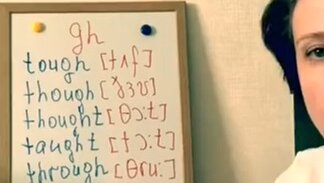 gh
tough [tʌf]
though [ðəʊ]
thought [θɔ:t]
taught [tɔ:t]
through [θru:]